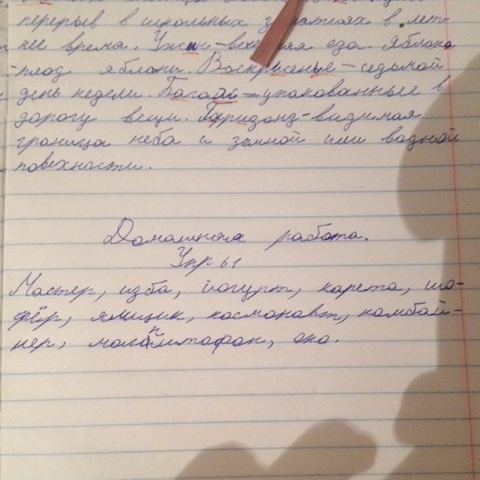 перерыв в школьных занятиях в лет-
нее время. Ужин-вечерняя еда. Яблоко
-плод яблони. Воскрисенье-седьмой
день недели. Багаж-упакованные в
дорогу вещи. Гаризонд-видимая
граница неба и земной или водной
повехности.
Домашняя работа.
Упр 61
Мастер, изба, йогурт, карета, шо-
фёр, ямщик, космонавт, комбай-
нер, магнитофон, окно.